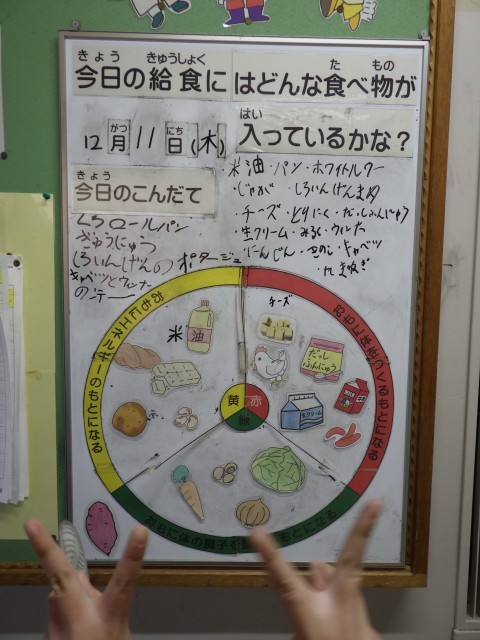 きょう きゅうしょく
今日の給食に
た もの
はどんな食べ物が
はい
入っているかな?
がつ にち
12月11日(木)
きょう
今日のこんだて
くろロールパン
ぎゅうにゅう
しろいんげんのポタージュ
キャベツとウィンナー
のソテー
米油・パン・ホワイトルウー
・じゃが・しろいんげんまめ
・チーズ・とりにく・だっしふんにゅう
・生クリーム・みるく・ウィンナ
・にんじん・きのこ・キャベツ
・たまねぎ
チーズ
米
油
だっし
ふんにゅう
生クリーム
黄
赤
緑
おもにエネルギーのもとになる
おもに体をつくるもとになる
おもに体の調子を
もとになる